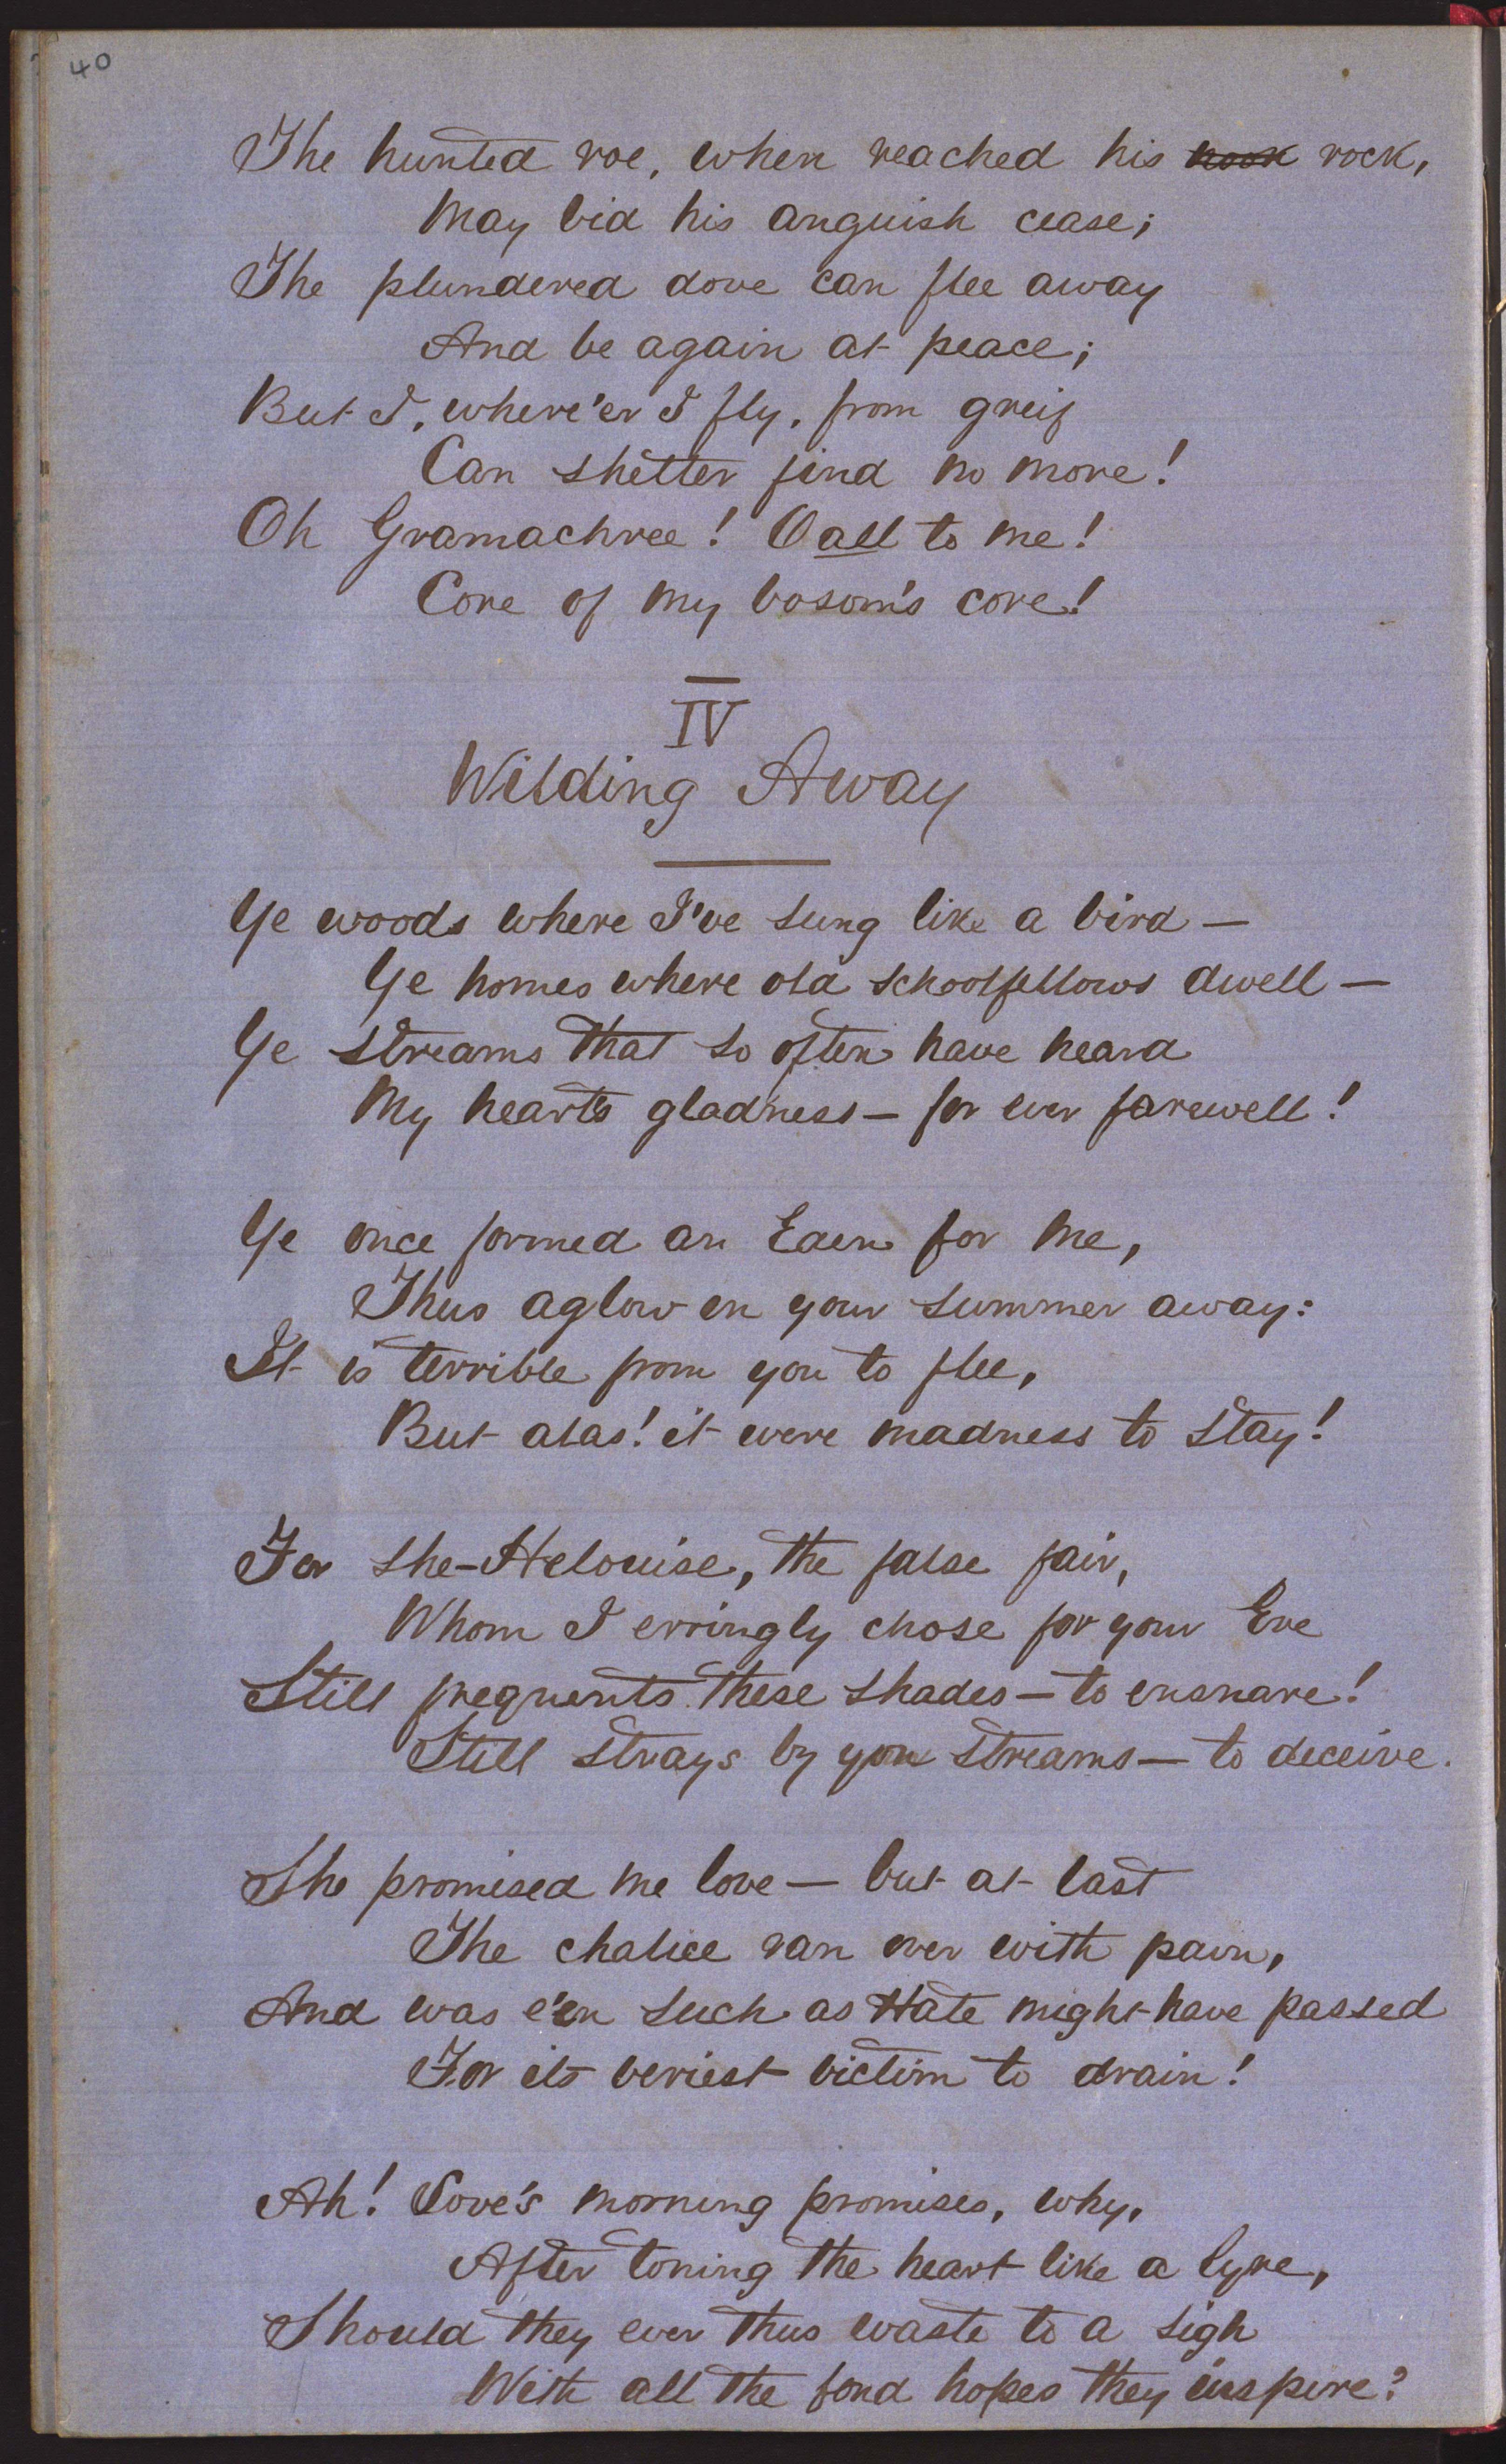 40
The hunted roe, when reached his nook rock,
May bid his anguish cease;
The plundered dove can flee away
And be again at peace;
But I, where'er I fly, from greif
Can shelter find no more!
Oh Gramachree! O all to me!
Core of my bosom's core!
IV
Wilding Away
Ye woods where I've sung like a bird —
Ye homes where old schoolfellows dwell —
Ye streams that so often have heard
My heart's gladness — for ever farewell!
Ye once formed an Eden for me,
Thus aglow in your summer away:
It is terrible from you to flee,
But alas! it were madness to stay!
For she — Helouise, the false fair,
Whom I erringly chose for your Eve
Still frequents these shades — to ensnare!
Still strays by your streams — to deceive.
She promised me love — but at last
The chalice ran over with pain,
And was e'en such as Hate might have passed
For its veriest victim to drain!
Ah! Love's morning promises, why,
After toning the heart like a lyre,
Should they ever thus waste to a sigh
With all the fond hopes they inspire?